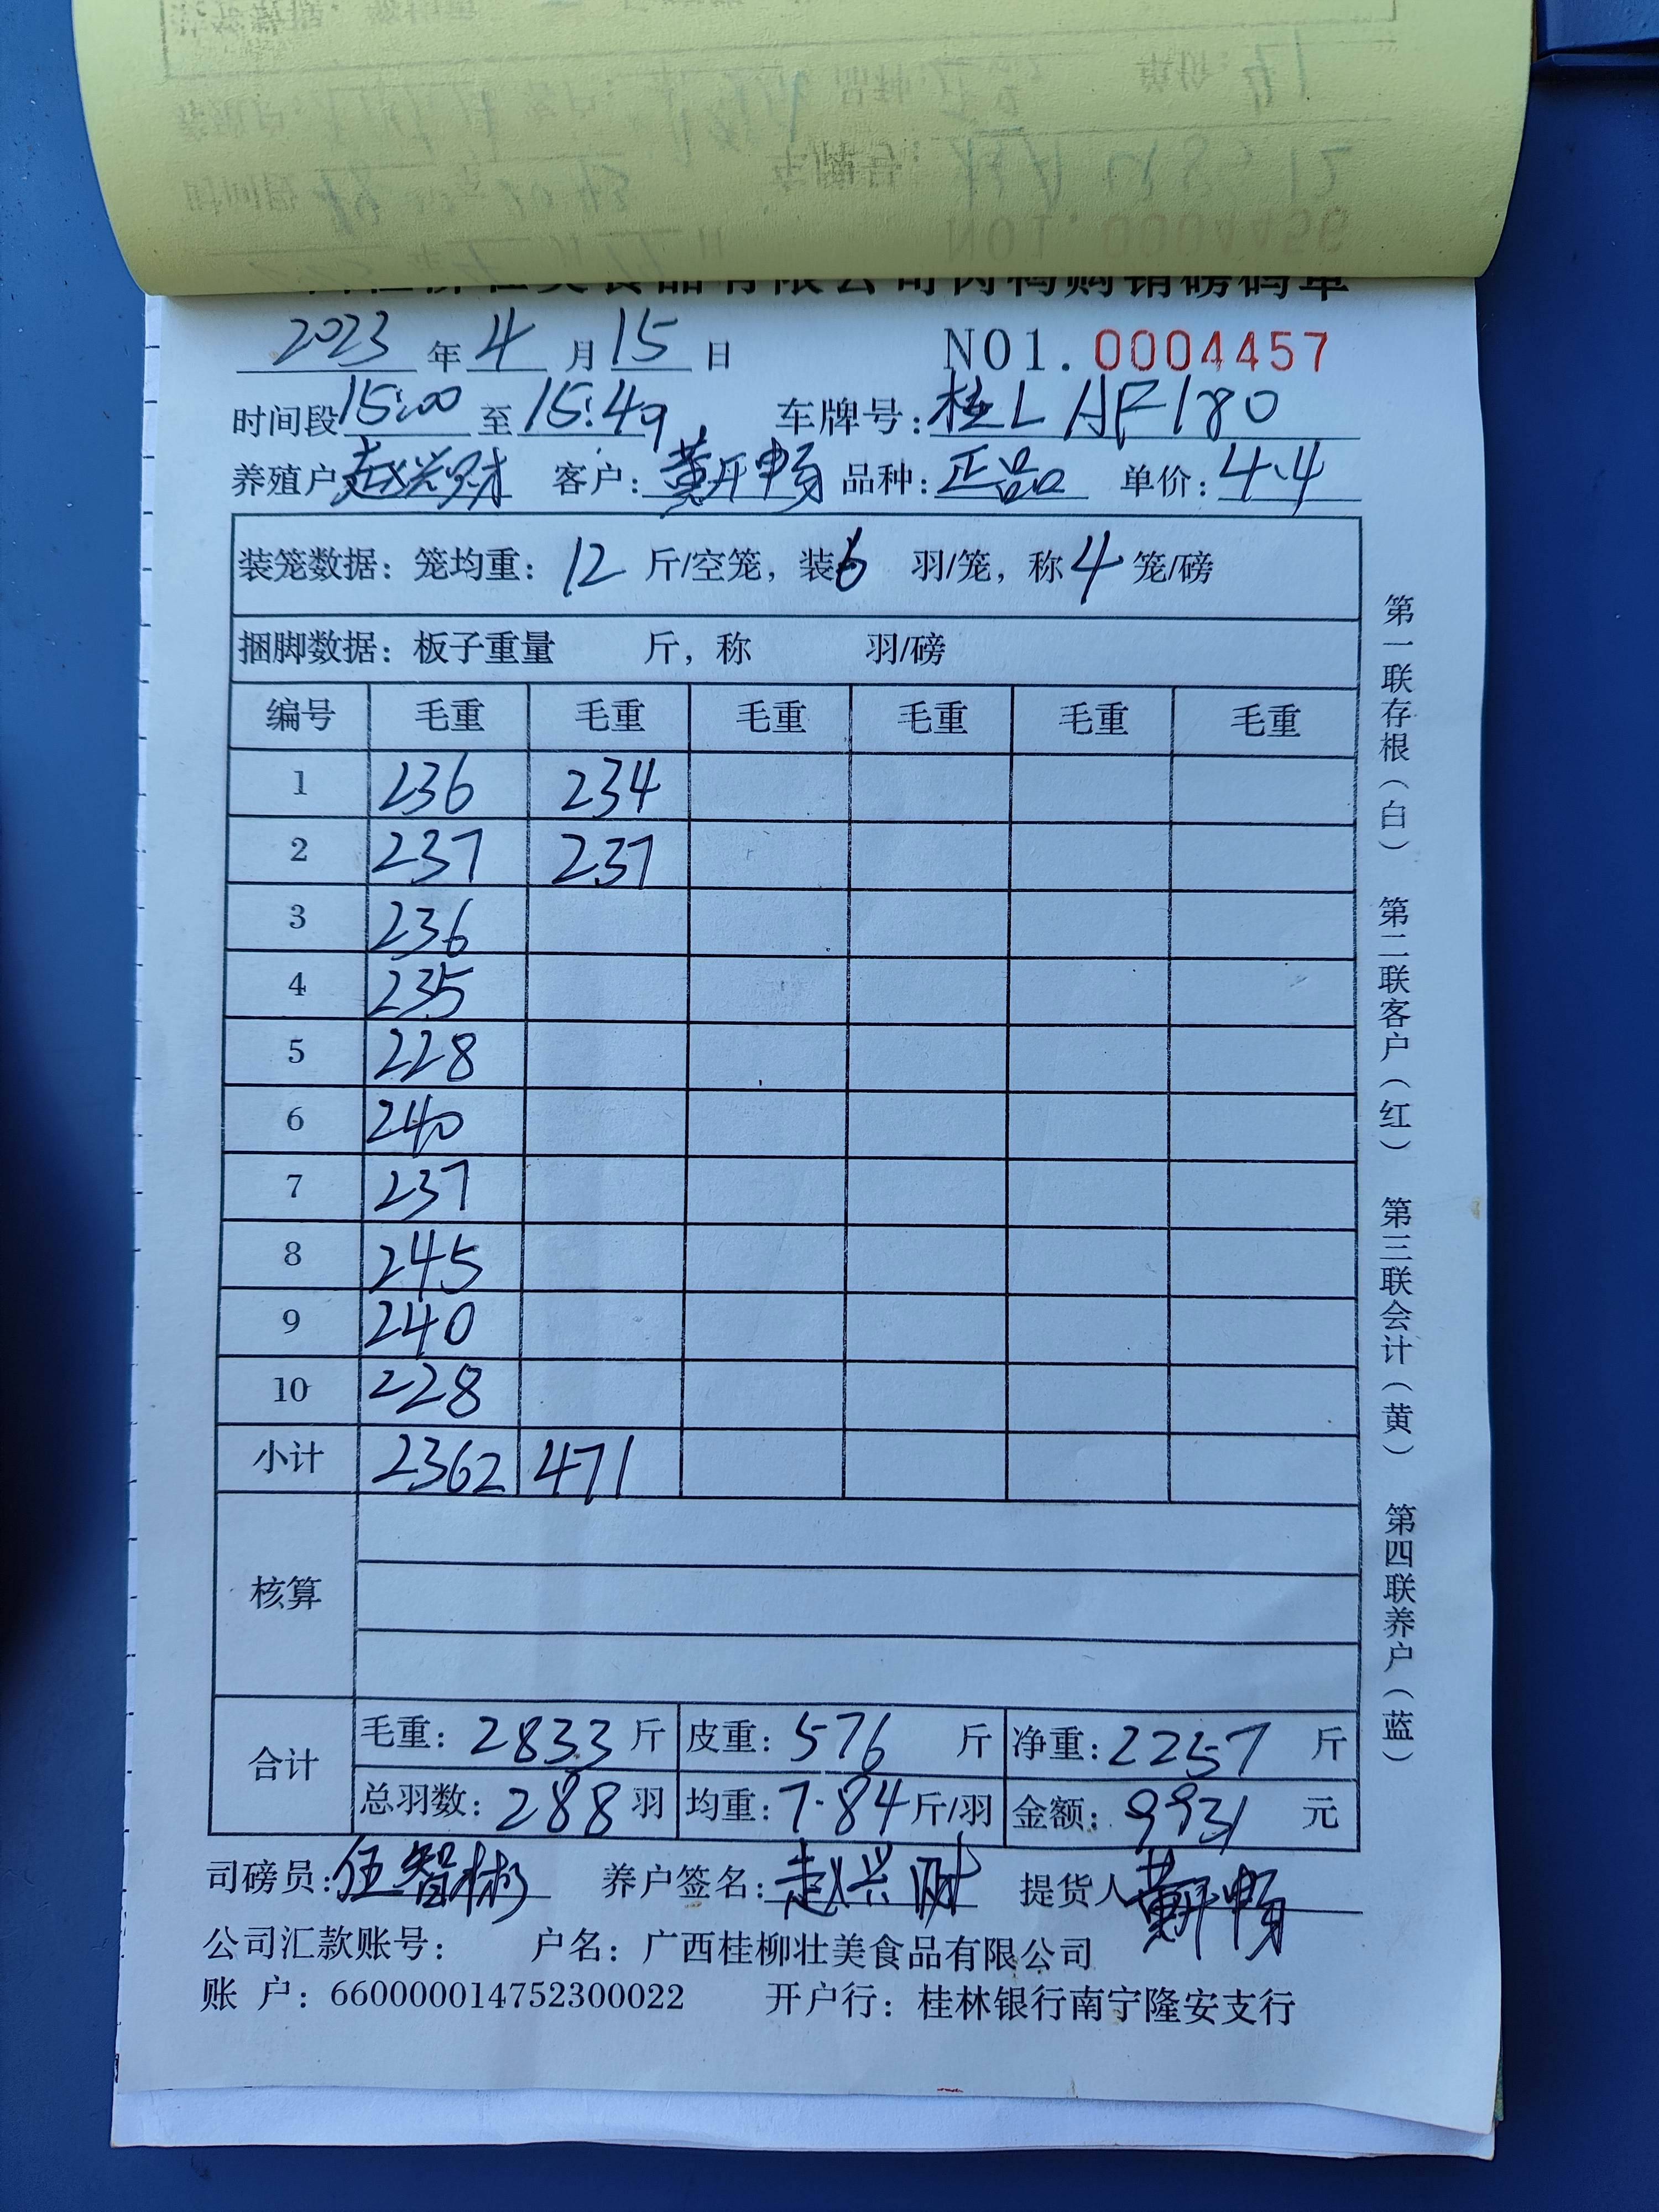 食品有限公司肉鸭购销磅码单
2023 年 4 月 15 日 NO1. 0004457
时间段 15:00 至 15:49 车牌号: 桂L AF180
养殖户 赵兴财 客户: 黄开畅 品种: 正品 单价: 4.4
装笼数据: 笼均重: 12 斤/空笼, 装 6 羽/笼, 称 4 笼/磅
捆脚数据: 板子重量 斤, 称 羽/磅
编号 毛重 毛重 毛重 毛重 毛重 毛重
1 236 234
2 237 237
3 236
4 235
5 228
6 240
7 237
8 245
9 240
10 228
小计 2362 471
核算
合计
毛重: 2833 斤 皮重: 576 斤 净重: 2257 斤
总羽数: 288 羽 均重: 7.84 斤/羽 金额: 9931 元
司磅员: 伍智彬 养户签名: 赵兴财 提货人 黄开畅
公司汇款账号: 户名: 广西桂柳壮美食品有限公司
账 户: 660000014752300022 开户行: 桂林银行南宁隆安支行
第一联存根(白) 第二联客户(红) 第三联会计(黄) 第四联养户(蓝)